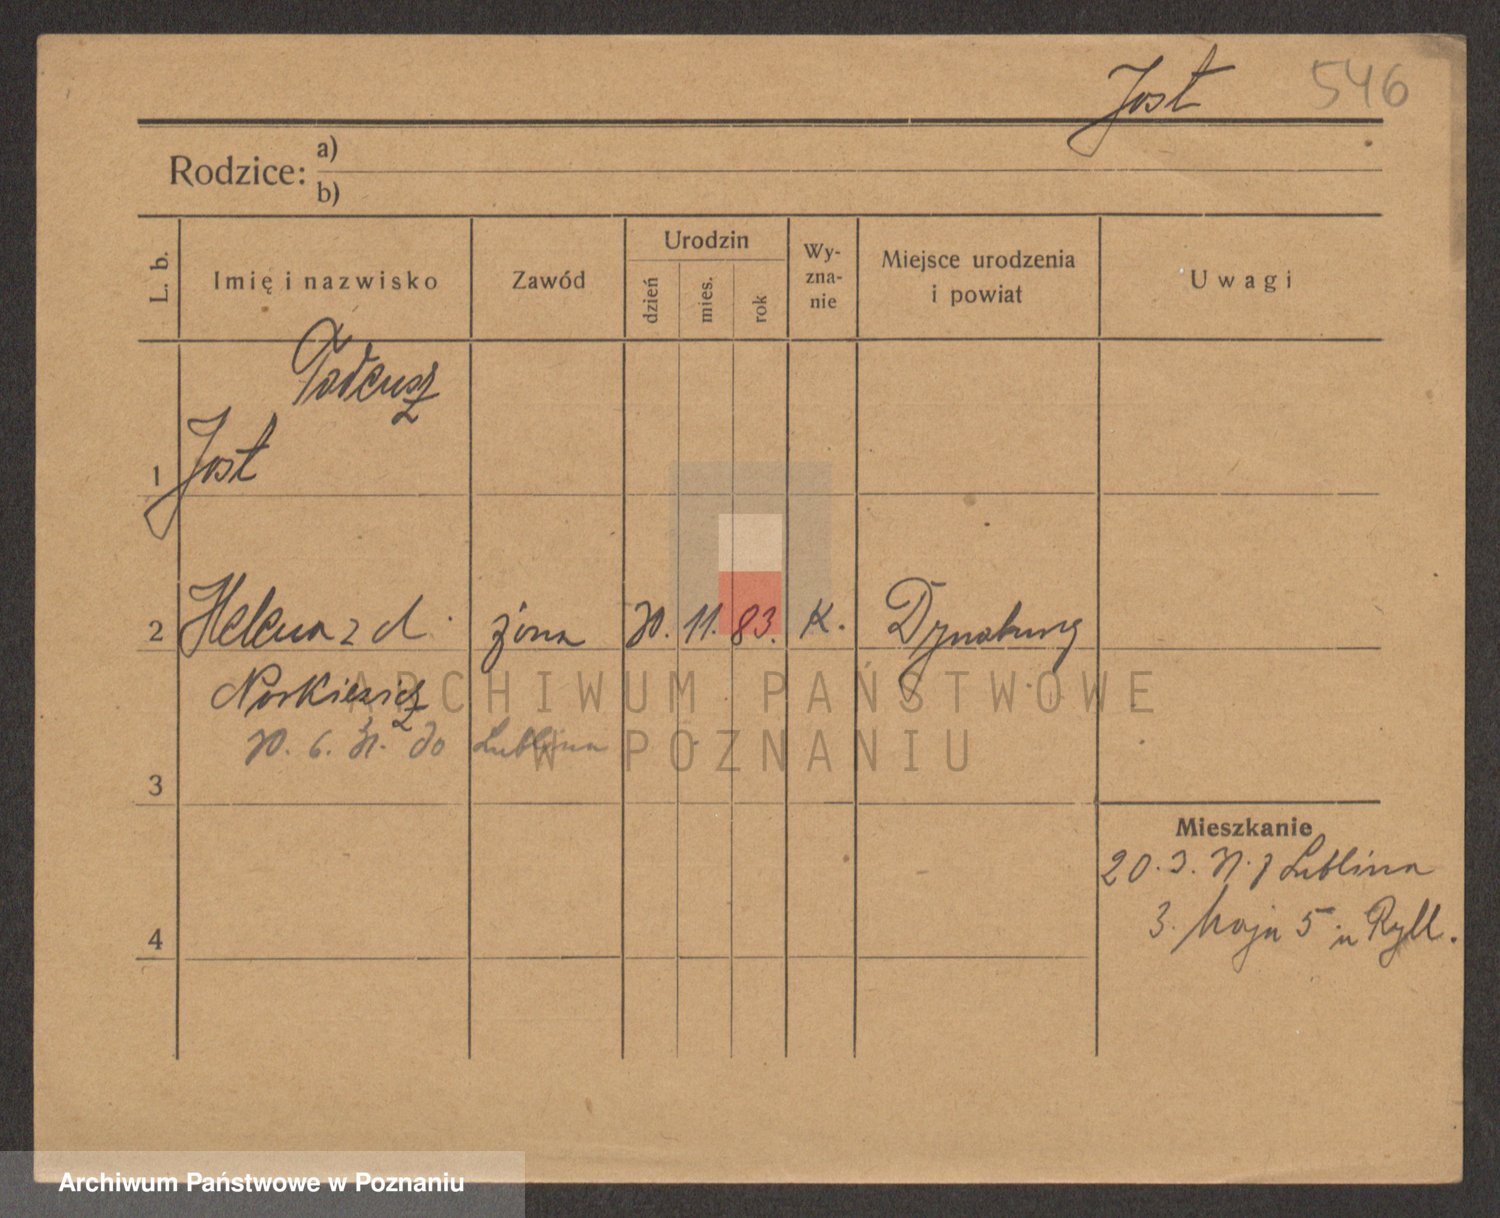 Jost 546
Rodzice: a)
b)
L. b. Imię i nazwisko Zawód Urodzin dzień mies. rok Wy-zna-nie Miejsce urodzenia i powiat Uwagi
Tadeusz
1 Jost
2 Helena z d. żona 20. 11. 83. K. Dynaburg
Norkiewicz
6. do Lublina
3
Mieszkanie
20. 3. z Lublina
3. Maja 5 u Ryll.
4
ARCHIWUM PAŃSTWOWE
W POZNANIU
Archiwum Państwowe w Poznaniu